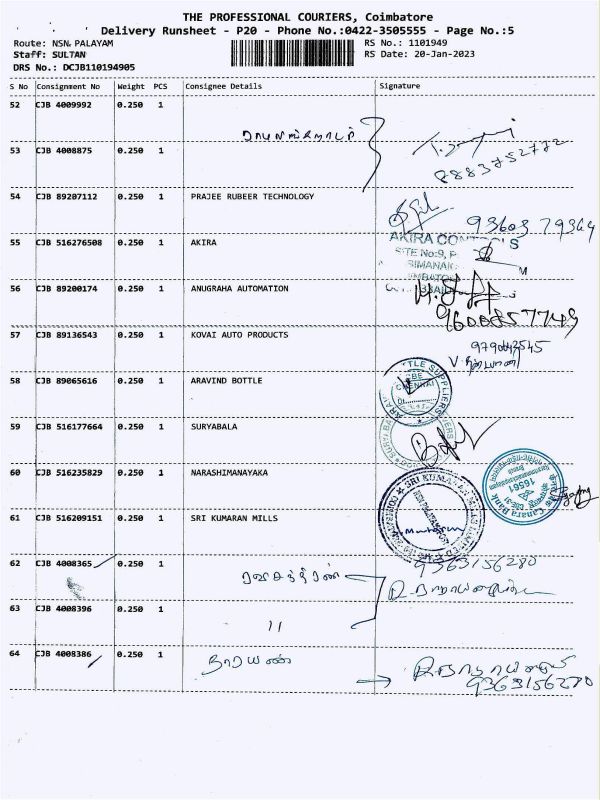 THE PROFESSIONAL COURIERS, Coimbatore
Delivery Runsheet - P20 - Phone No.:0422-3505555 - Page No.:5
Route: NSN PALAYAM RS No.: 1101949
Staff: SULTAN RS Date: 20-Jan-2023
DRS No.: DCJB110194905
S No Consignment No Weight PCS Consignee Details Signature
52 CJB 4009992 0.250 1
53 CJB 4008875 0.250 1
8883752772
54 CJB 89207112 0.250 1 PRAJEE RUBEER TECHNOLOGY
93603 79364
55 CJB 516276508 0.250 1 AKIRA
AKIRA
SITE No:9,
56 CJB 89200174 0.250 1 ANUGRAHA AUTOMATION
57 CJB 89136543 0.250 1 KOVAI AUTO PRODUCTS
58 CJB 89065616 0.250 1 ARAVIND BOTTLE
CHENNAI
59 CJB 516177664 0.250 1 SURYABALA
60 CJB 516235829 0.250 1 NARASHIMANAYAKA
Canara Bank
16561
61 CJB 516209151 0.250 1 SRI KUMARAN MILLS
SRI KUMARAN MILLS LIMITED
62 CJB 4008365 0.250 1
9363156280
63 CJB 4008396 0.250 1 11
64 CJB 4008386 0.250 1 நாராயணன்
9363156280